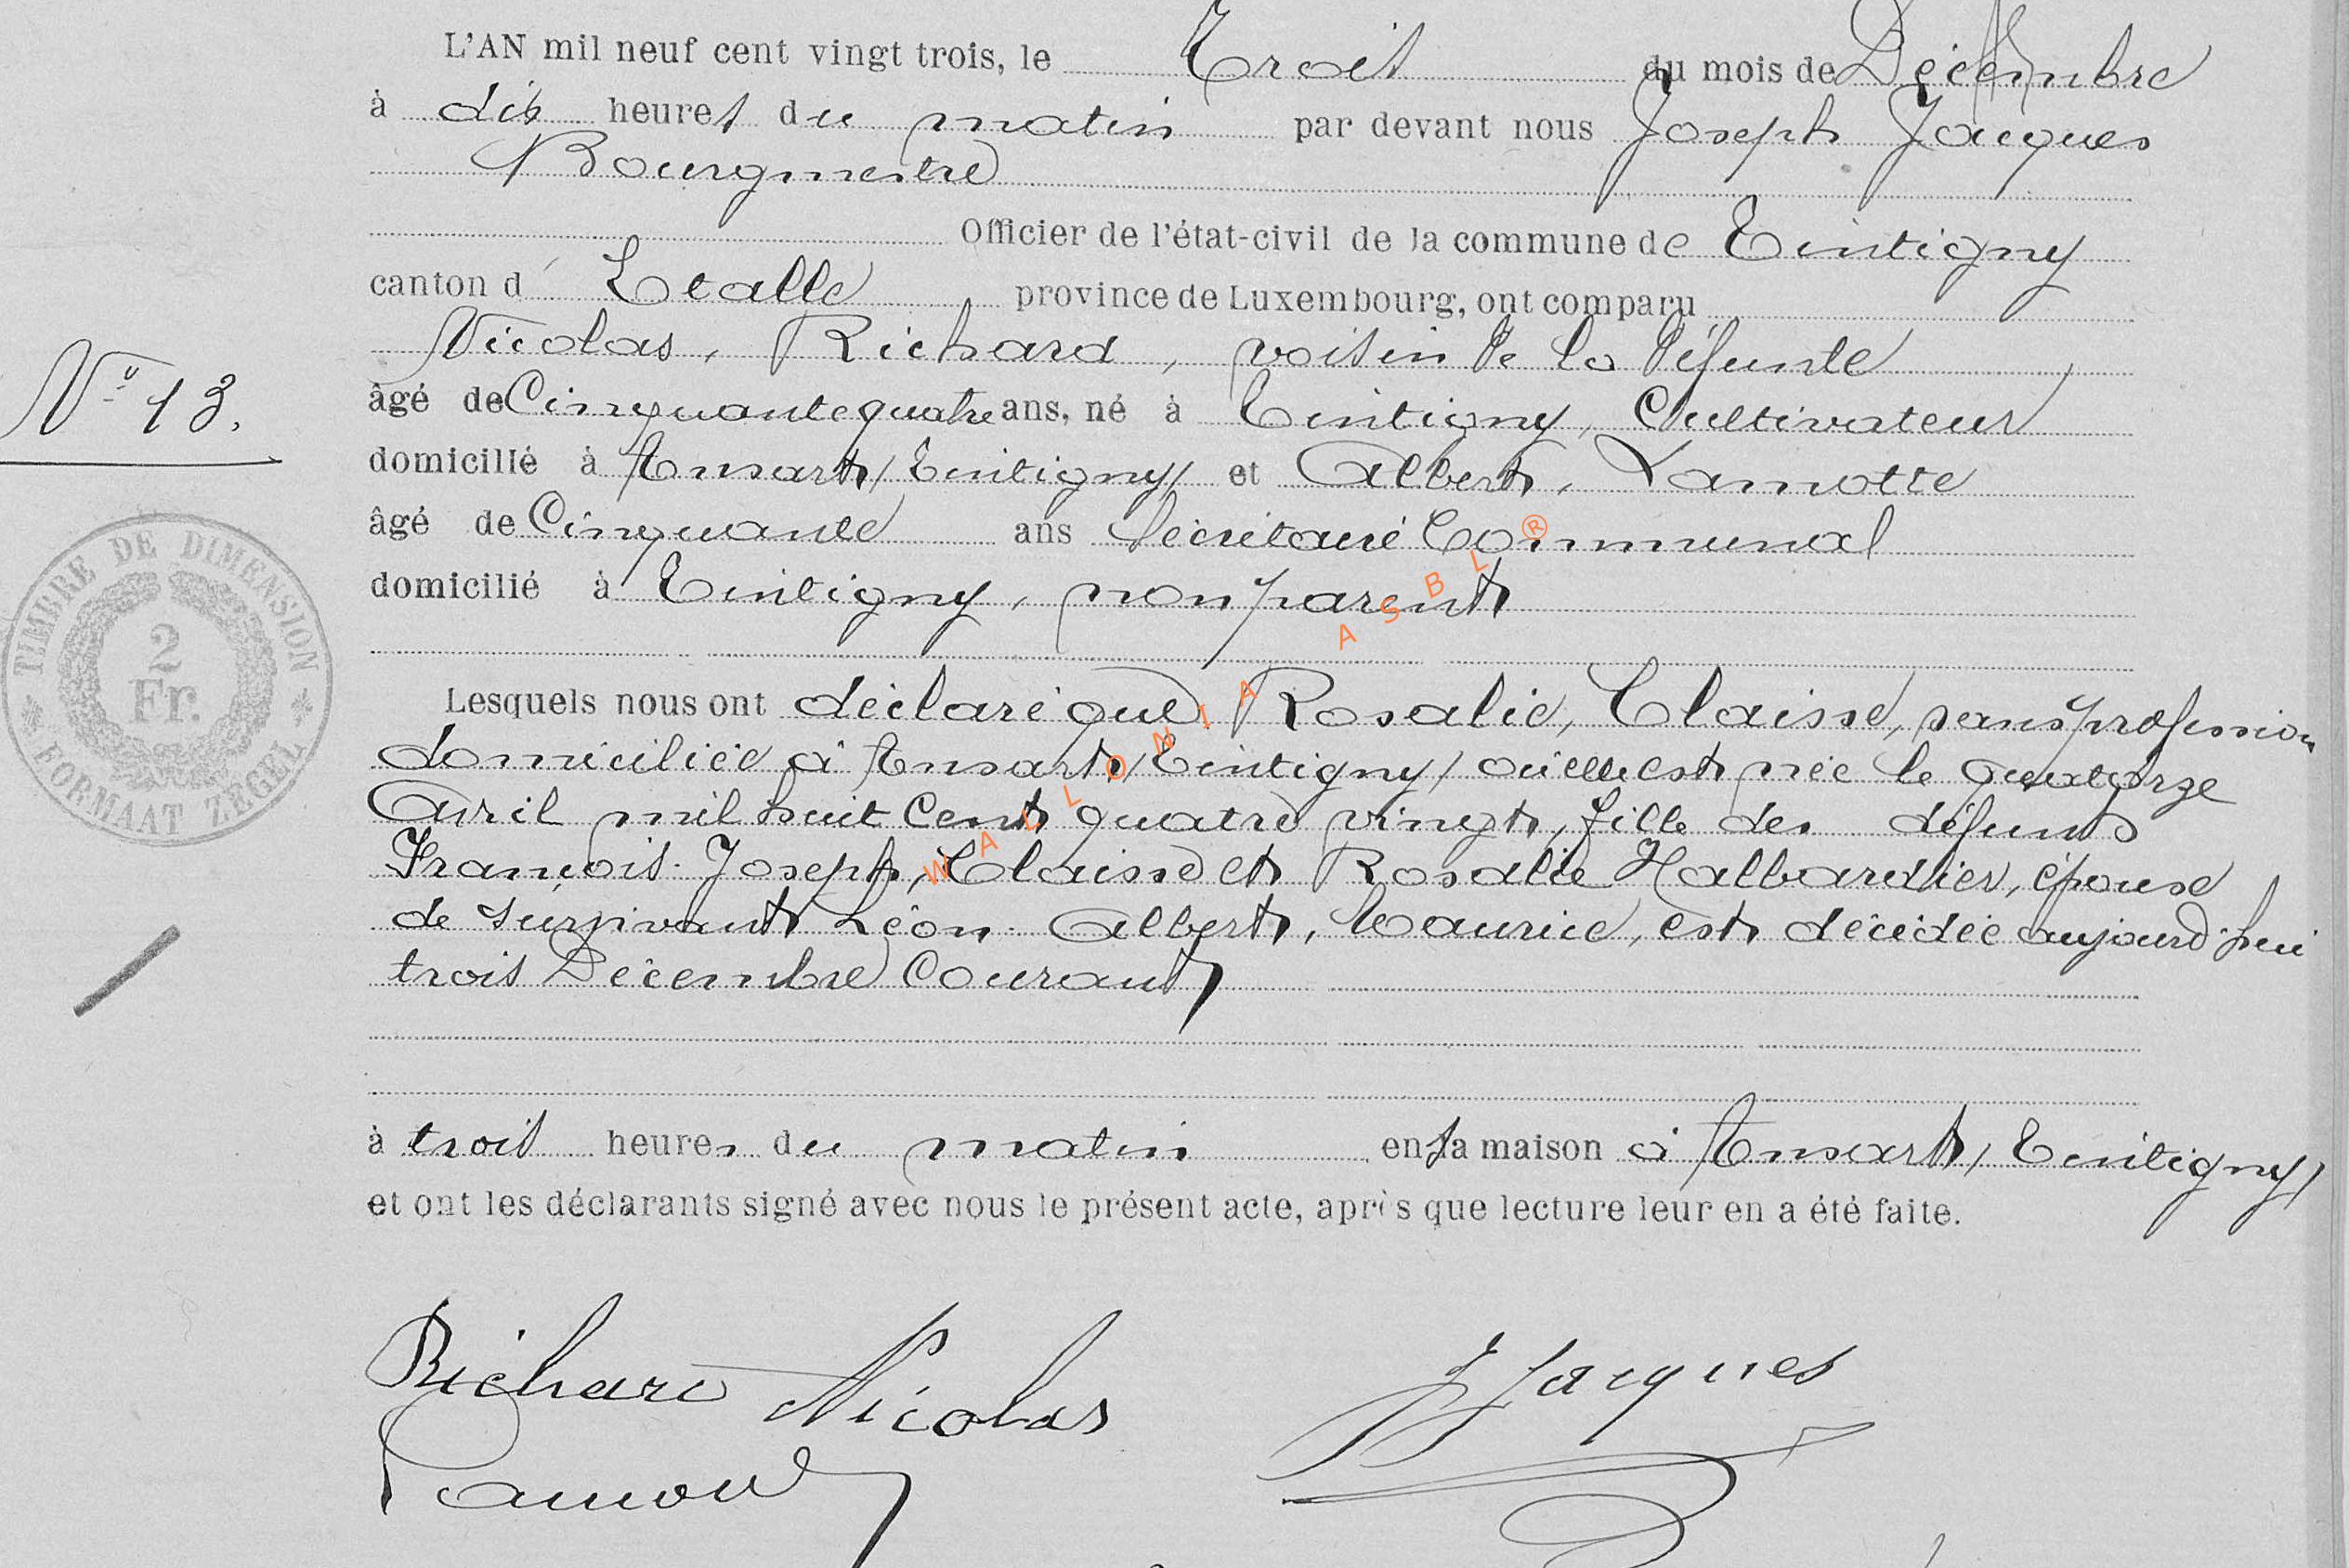 L'AN mil neuf cent vingt trois, le Trois du mois de Décembre
à dix heures du matin par devant nous Joseph Jacques
Bourgmestre
Officier de l'état-civil de la commune de Tintigny
canton d'Etalle province de Luxembourg, ont comparu
Nicolas, Richard, voisin de la défunte,
N° 13.
âgé de Cinquante quatre ans, né à Tintigny, Cultivateur
domicilié à Ansart /Tintigny/ et Albert, Lamotte
âgé de Cinquante ans Secrétaire Communal
domicilié à Tintigny, non parent
TIMBRE DE DIMENSION
2
Fr.
FORMAAT ZEGEL
Lesquels nous ont déclaré que Rosalie, Claisse, sans profession
domiciliée à Ansart /Tintigny/ où elle est née le quatorze
Avril mil huit Cent quatre vingt, fille des défunts
François-Joseph, Claisse et Rosalie Halbardier, épouse
de survivant Léon-Albert, Maurice, est décédée aujourd'hui
trois Décembre Courant
à trois heures du matin en sa maison à Ansart /Tintigny/
et ont les déclarants signé avec nous le présent acte, après que lecture leur en a été faite.
Richard Nicolas
J Jacques
Lamotte
WALLONIA ASBL ®